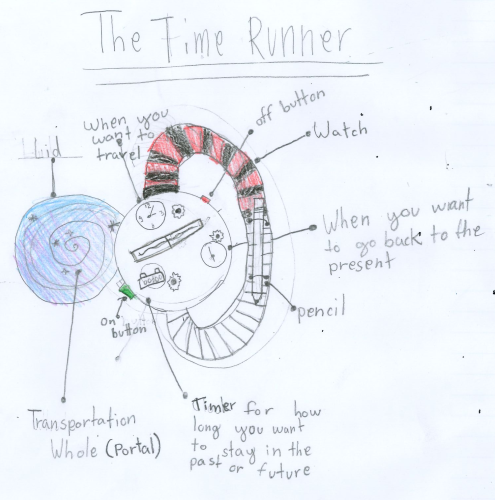 The Time Runner
When you
want to
travel
off button
Watch
Lid
When you want
to go back to the
present
pencil
on
button
Transportation
Whole (Portal)
Timer for how
long you want
to stay in the
past or future